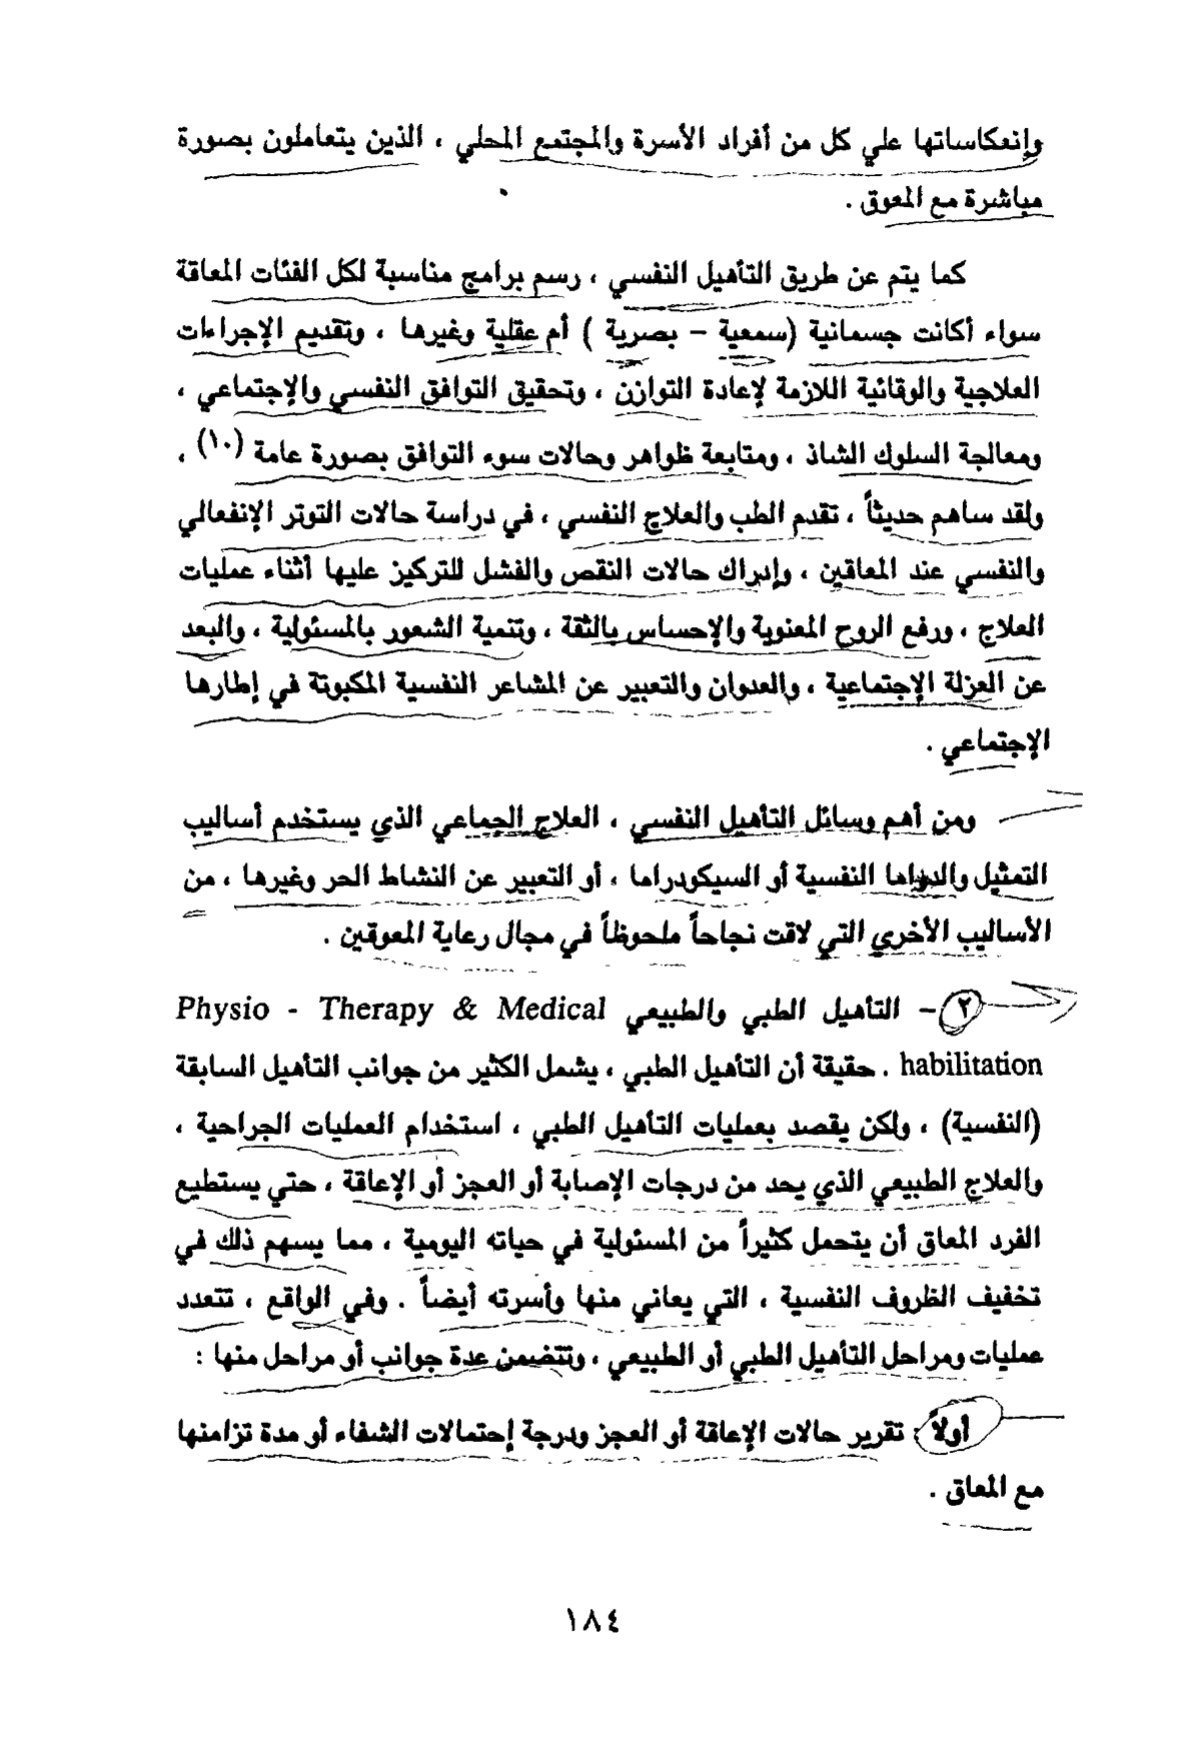 وإنعكاساتها علي كل من أفراد الأسرة والمجتمع المحلي ، الذين يتعاملون بصورة
مباشرة مع المعوق .
كما يتم عن طريق التأهيل النفسي ، رسم برامج مناسبة لكل الفئات المعاقة
سواء أكانت جسمانية (سمعية – بصرية ) أم عقلية وغيرها ، وتقديم الإجراءات
العلاجية والوقائية اللازمة لإعادة التوازن ، وتحقيق التوافق النفسي والإجتماعي ،
ومعالجة السلوك الشاذ ، ومتابعة ظواهر وحالات سوء التوافق بصورة عامة (١٠) ،
ولقد ساهم حديثاً ، تقدم الطب والعلاج النفسي ، في دراسة حالات التوتر الإنفعالي
والنفسي عند المعاقين ، وإدراك حالات النقص والفشل للتركيز عليها أثناء عمليات
العلاج ، ورفع الروح المعنوية والإحساس بالثقة ، وتنمية الشعور بالمسئولية ، والبعد
عن العزلة الإجتماعية ، والعدوان والتعبير عن المشاعر النفسية المكبوتة في إطارها
الإجتماعي .
ومن أهم وسائل التأهيل النفسي ، العلاج الجماعي الذي يستخدم أساليب
التمثيل والدراما النفسية أو السيكودراما ، أو التعبير عن النشاط الحر وغيرها ، من
الأساليب الأخري التي لاقت نجاحاً ملحوظاً في مجال رعاية المعوقين .
٢ – التأهيل الطبي والطبيعي Physio - Therapy & Medical
habilitation . حقيقة أن التأهيل الطبي ، يشمل الكثير من جوانب التأهيل السابقة
(النفسية) ، ولكن يقصد بعمليات التأهيل الطبي ، استخدام العمليات الجراحية ،
والعلاج الطبيعي الذي يحد من درجات الإصابة أو العجز أو الإعاقة ، حتي يستطيع
الفرد المعاق أن يتحمل كثيراً من المسئولية في حياته اليومية ، مما يسهم ذلك في
تخفيف الظروف النفسية ، التي يعاني منها وأسرته أيضاً . وفي الواقع ، تتعدد
عمليات ومراحل التأهيل الطبي أو الطبيعي ، وتتضمن عدة جوانب أو مراحل منها :
أولاً : تقرير حالات الإعاقة أو العجز ودرجة إحتمالات الشفاء أو مدة تزامنها
مع المعاق .
١٨٤